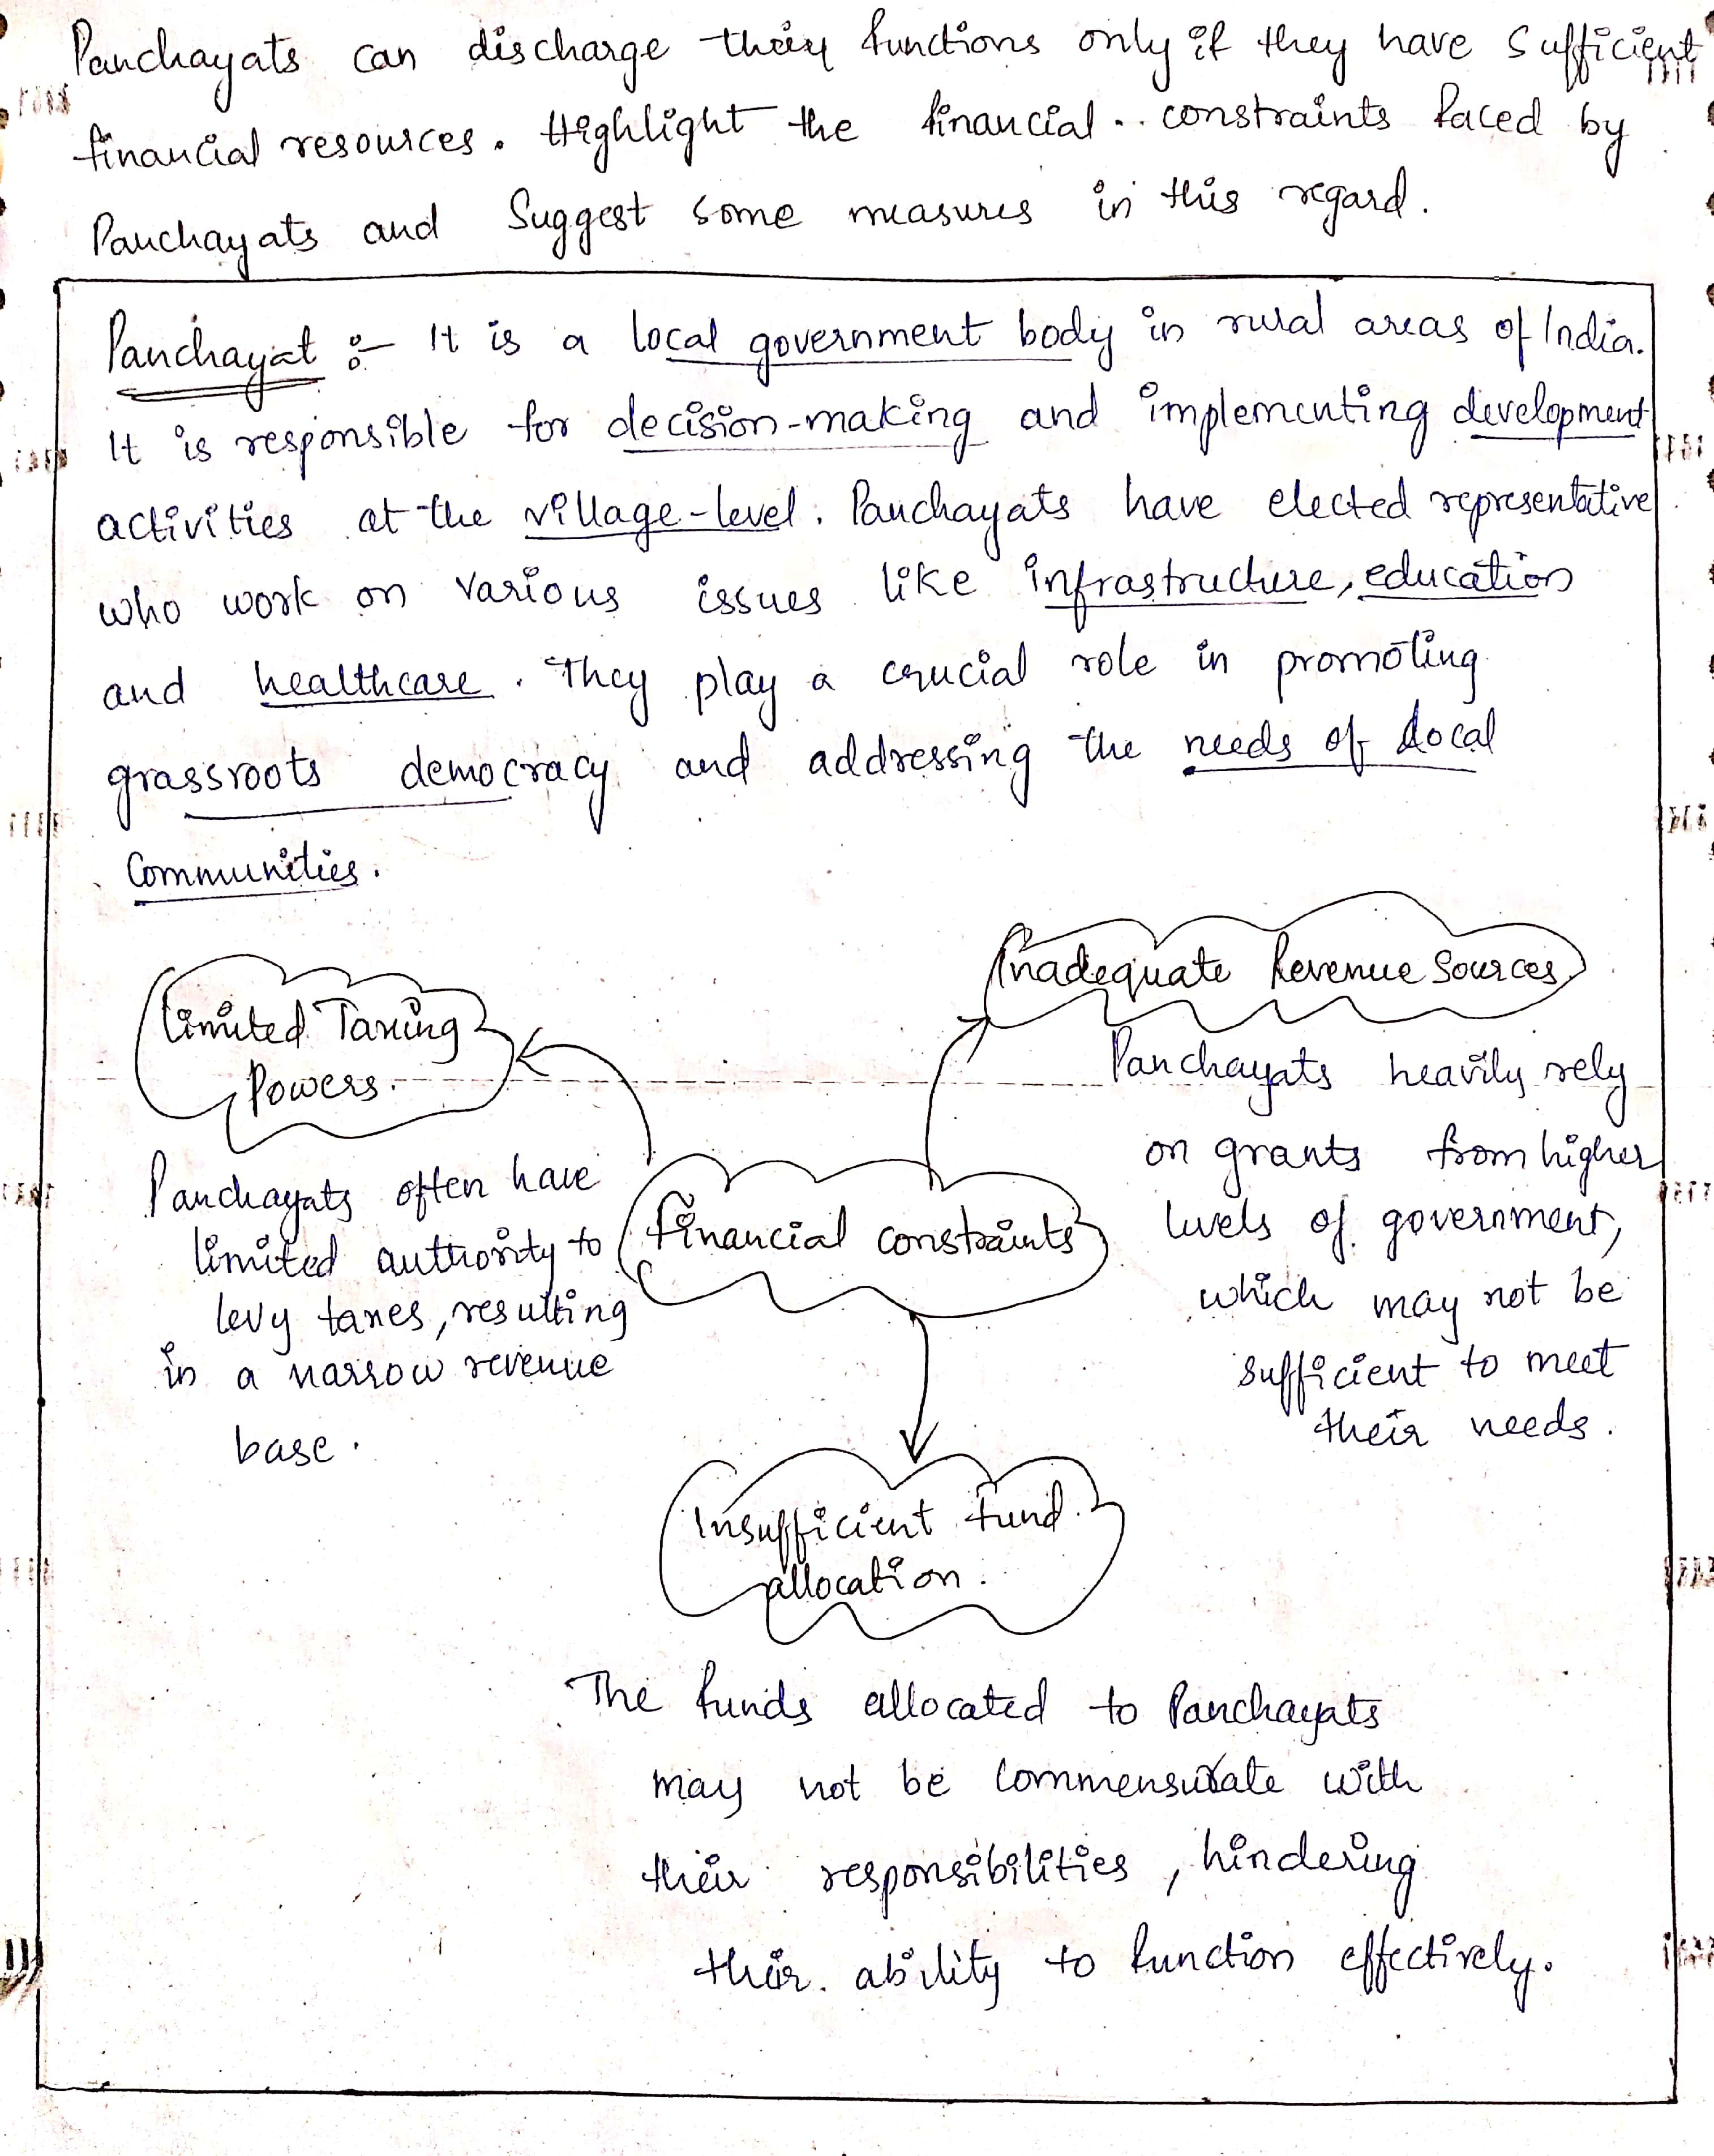 Panchayats can discharge their functions only if they have sufficient
financial resources. Highlight the financial constraints faced by
Panchayats and Suggest some measures in this regard.
Panchayat :- It is a local government body in rural areas of India.
It is responsible for decision-making and implementing development
activities at the village-level. Panchayats have elected representative
who work on various issues like infrastructure, education
and healthcare. They play a crucial role in promoting
grassroots democracy and addressing the needs of local
Communities.
Limited Taxing
Powers.
Panchayats often have
limited authority to
levy taxes, resulting
in a narrow revenue
base.
Inadequate Revenue Sources
Panchayats heavily rely
on grants from higher
levels of government,
which may not be
sufficient to meet
their needs.
Financial constraints
Insufficient fund
allocation.
The funds allocated to Panchayats
may not be commensurate with
their responsibilities, hindering
their ability to function effectively.